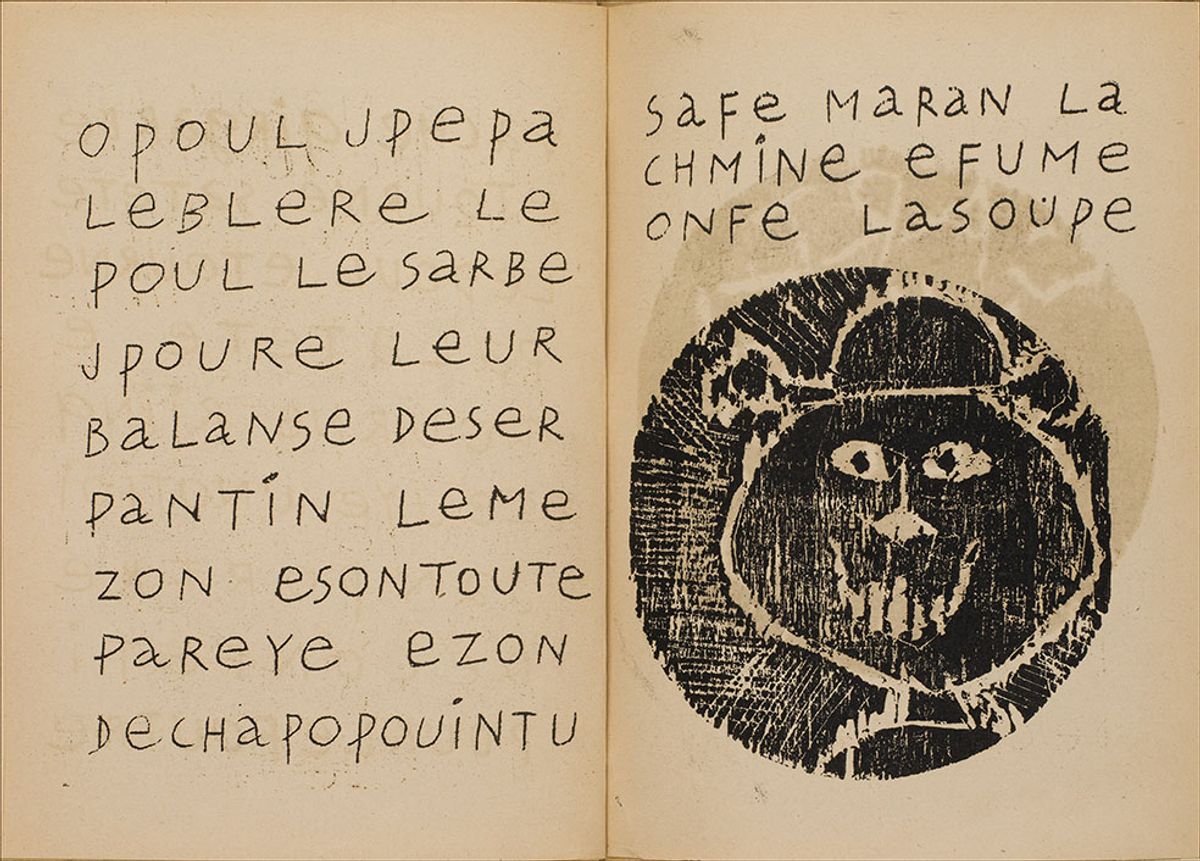 OPOUL JPEPA
LeBLeRe Le
POUL Le SaRBe
JPOURe LeUR
BaLANSe DeSeR
PaNTiN LeMe
ZON eSONTOUTe
PaReYe eZON
DeCHaPOPOUiNTU
SaFe MaRaN La
CHMiNe eFUMe
ONFe LaSOUPe